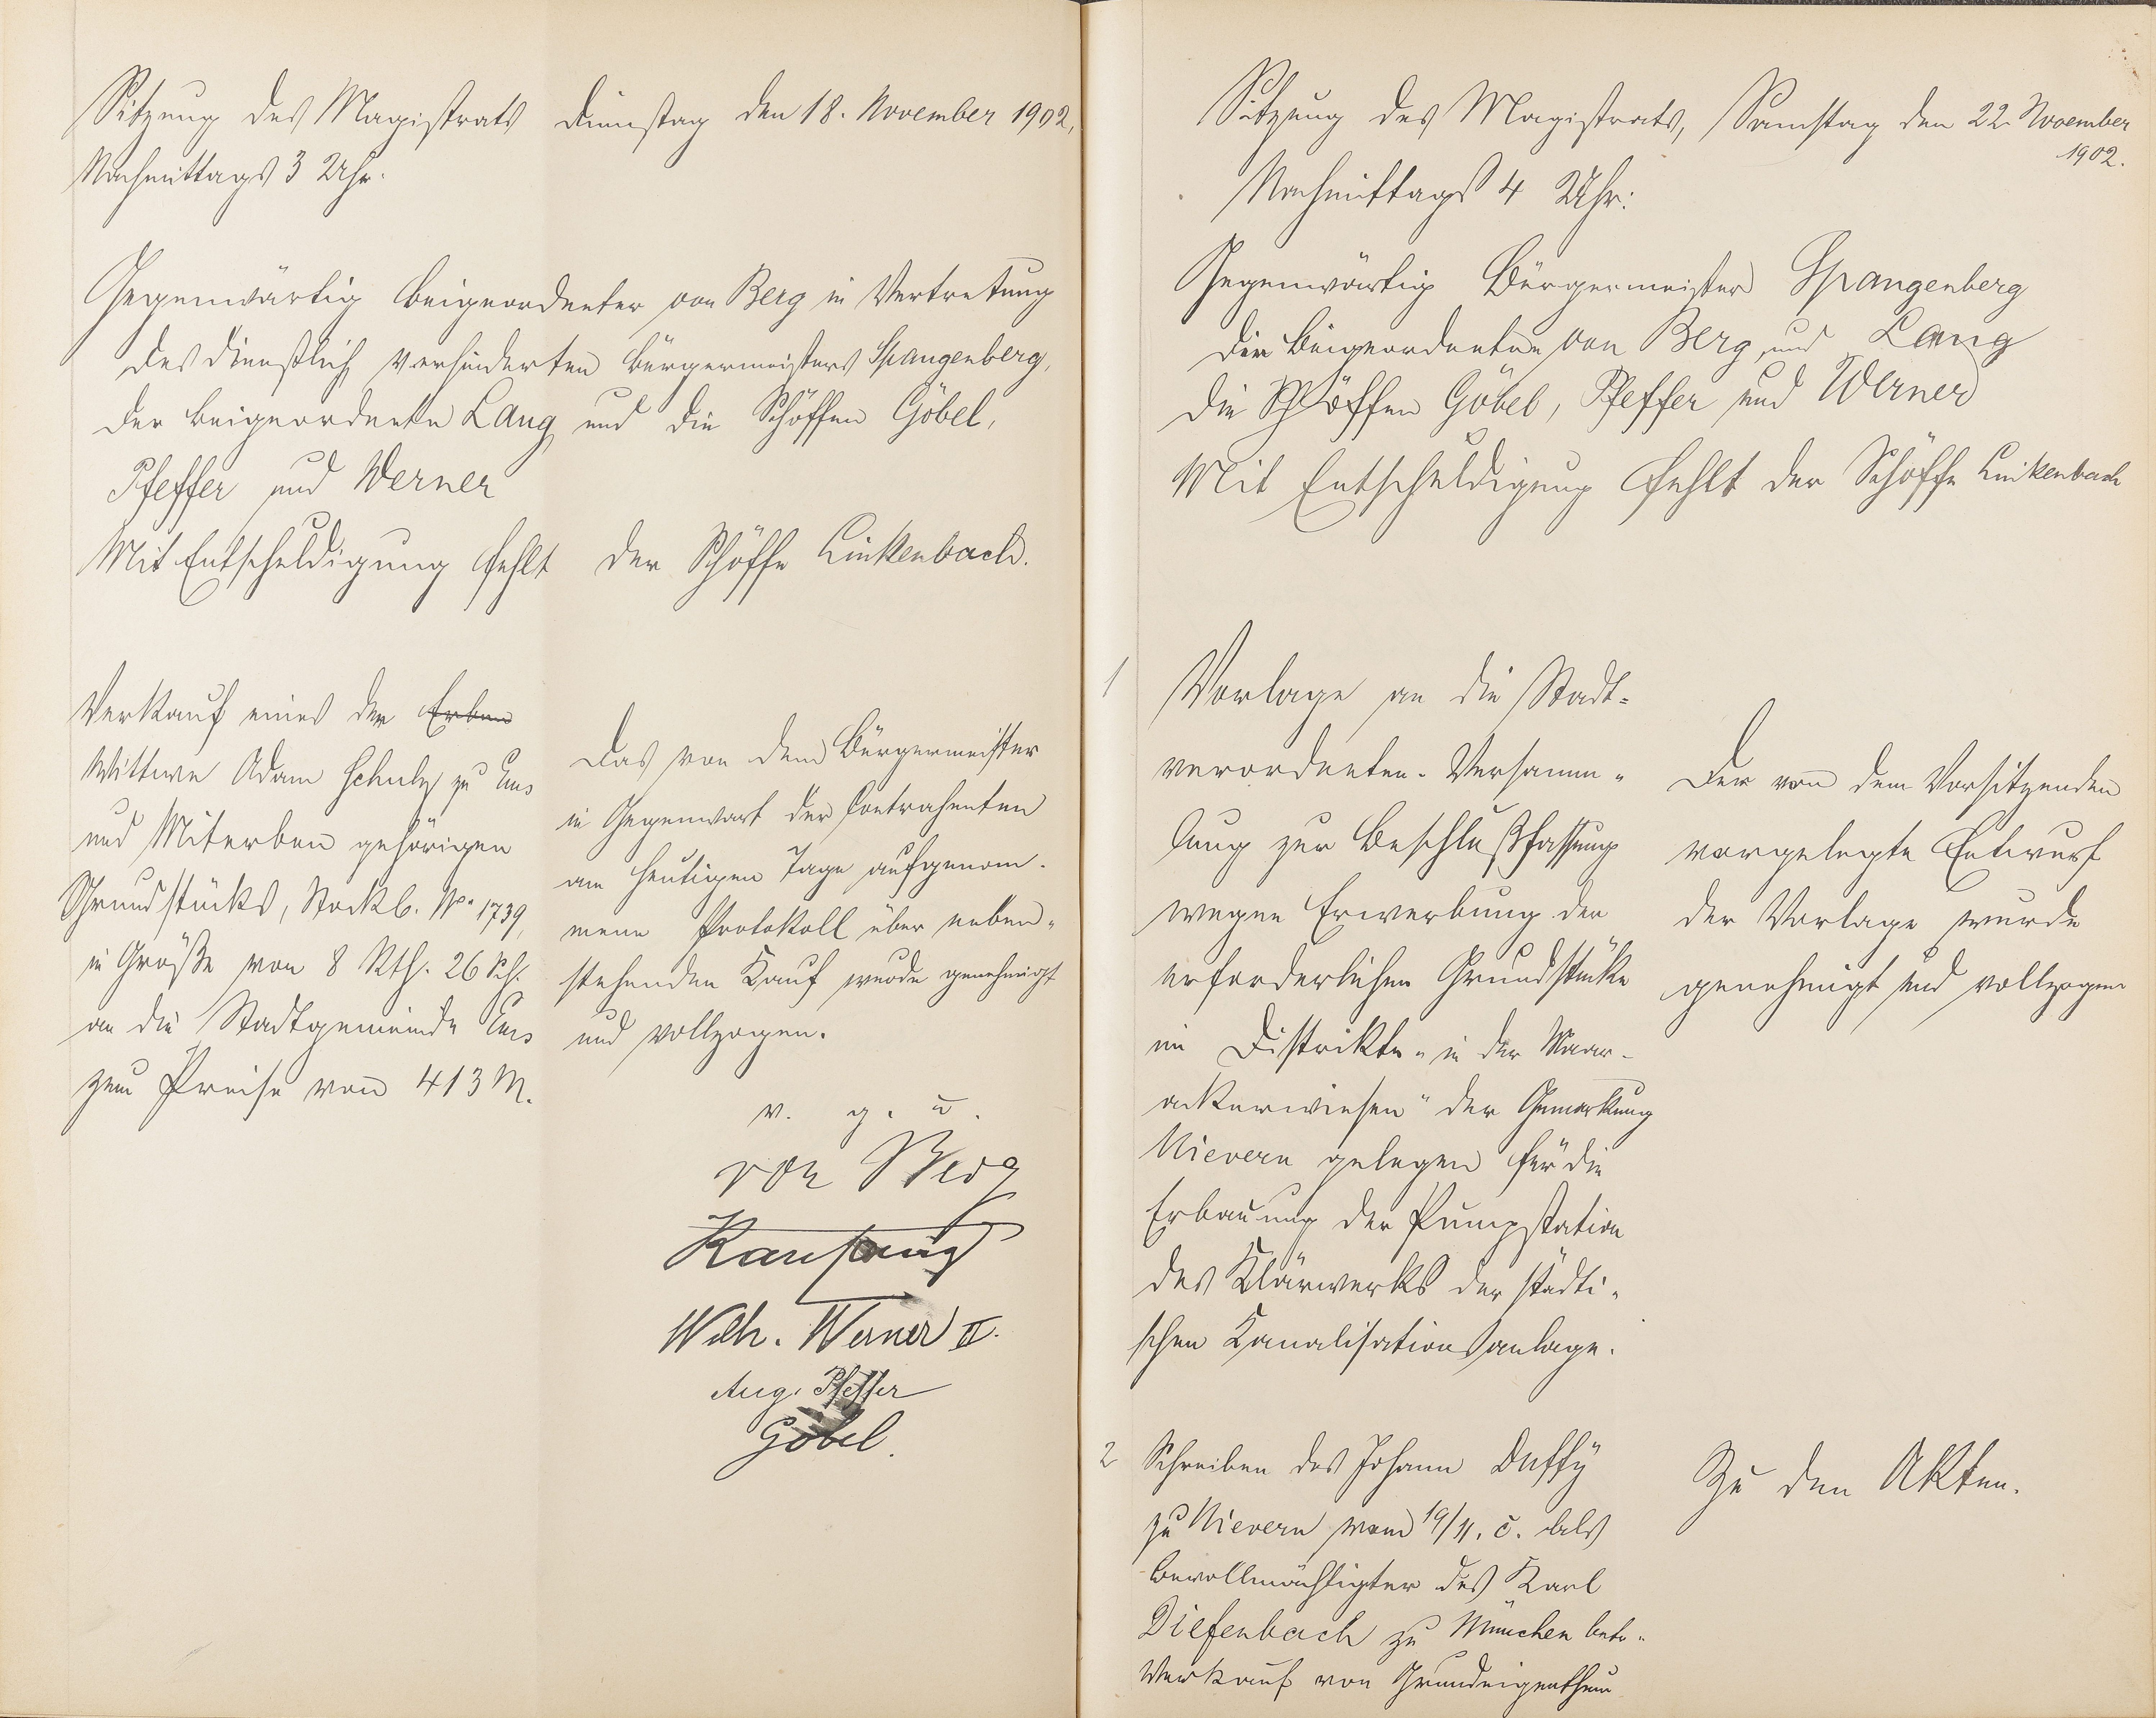 Sitzung des Magistrats Dienstag den 18. November 1902,
Nachmittags 3 Uhr.
Gegenwärtig Beigeordneter von Berg in Vertretung
des dienstlich verhinderten Bürgermeisters Spangenberg,
der Beigeordnete Lang und die Schöffen Göbel,
Pfeffer und Werner
Mit Entschuldigung fehlt der Schöffe Linkenbach.
Verkauf eines der Erben
Wittwe Adam Schulz zu Ems
und Miterben gehörigen
Grundstücks, Stockb. No. 1739,
in Größe von 8 Rth. 26 Sch.
an die Stadtgemeinde Ems
zum Preise von 413 M.
Das von dem Bürgermeister
in Gegenwart der Contrahenten
am heutigen Tage aufgenom-
mene Protokoll über neben-
stehenden Kauf wurde genehmigt
und vollzogen.
v. g. u.
von Berg
Wilh. Werner II.
Aug. Pfeffer
Göbel.
Sitzung des Magistrats, Samstag den 22. November
1902.
Nachmittags 4 Uhr:
Gegenwärtig Bürgermeister Spangenberg
die Beigeordneten von Berg und Lang
die Schöffen Göbel, Pfeffer und Werner
Mit Entschuldigung fehlt der Schöffe Linkenbach
1
Vorlage an die Stadt-
verordneten-Versamm-
lung zur Beschlußfassung
wegen Erwerbung der
erforderlichen Grundstücke
im Distrikte „in der Maar-
ackerwiesen“ der Gemarkung
Nievern gelegen für die
Erbauung der Pumpstation
des Klärwerks der städti-
schen Kanalisationsanlage.
Der von dem Vorsitzenden
vorgelegte Entwurf
der Vorlage wurde
genehmigt und vollzogen
2
Schreiben des Johann Duffy
zu Nievern vom 19/11. c. als
Bevollmächtigter des Karl
Diefenbach zu München betr.
Verkauf von Grundeigenthum
Zu den Akten.